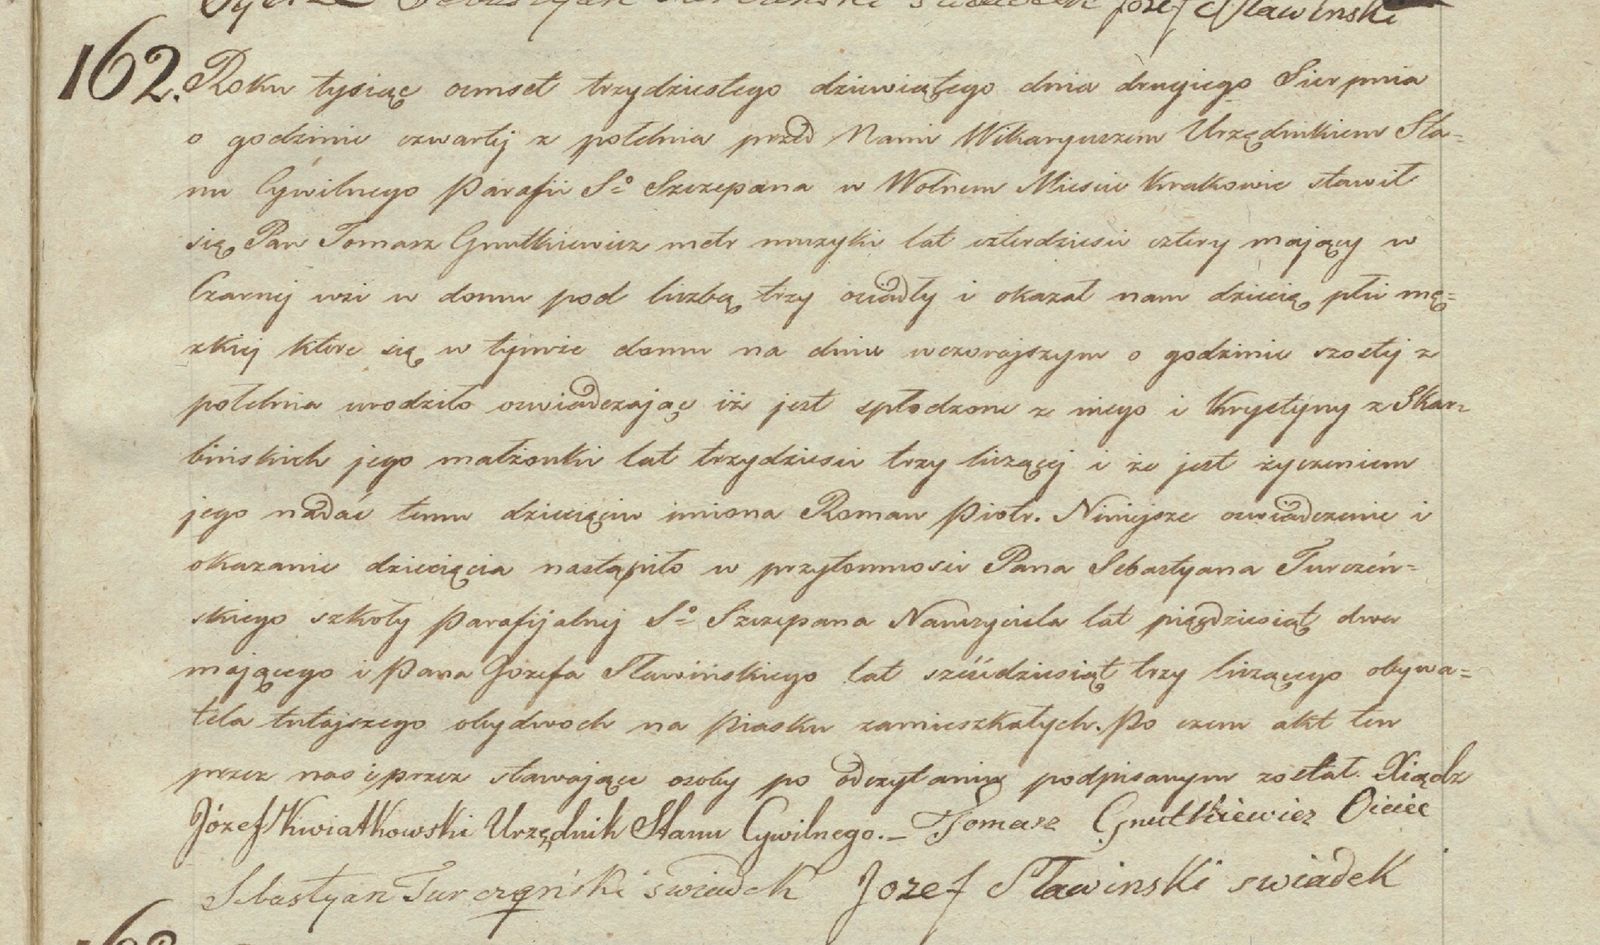 Sebastyan Józef Sławinski
162. Roku tysiąc osmset trzydziestego dziewiątego dnia drugiego Sierpnia
o godzinie czwartej z południa przed Nami Wikaryuszem Urzędnikiem Sta-
nu Cywilnego Parafii Sgo Szczepana w Wolnem Mieście Krakowie stawił
się Pan Tomasz Gnutkiewicz metr muzyki lat czterdzieści cztery mający w
Czarnej wsi w domu pod liczbą trzy osiadły i okazał nam dziecię płci mę-
zkiej które się w tymże domu na dniu wczorajszym o godzinie szostej z
południa urodziło oswiadczając iż jest spłodzone z niego i Krystyny z Skar-
bińskich jego małżonki lat trzydzieści trzy liczącej i że jest życzeniem
jego nadać temu dziecięciu imiona Roman Piotr. Niniejsze oswiadczenie i
okazanie dziecięcia nastąpiło w przytomnosci Pana Sebastyana Turczeń-
skiego szkoły Parafijalnej Sgo Szczepana Nauczyciela lat pięćdziesiąt dwa
mającego i Pana Jozefa Sławińskiego lat sześćdziesiąt trzy liczącego obywa-
tela tutajszego obydwoch na Piasku zamieszkałych. Po czem akt ten
przez nas i przez stawające osoby po odczytaniu podpisanym został. Xiądz
Józef Kwiatkowski Urzędnik Stanu Cywilnego. – Tomasz Gnutkiewicz Ociec
Sebastyan Turczęński swiadek Jozef Sławinski swiadek